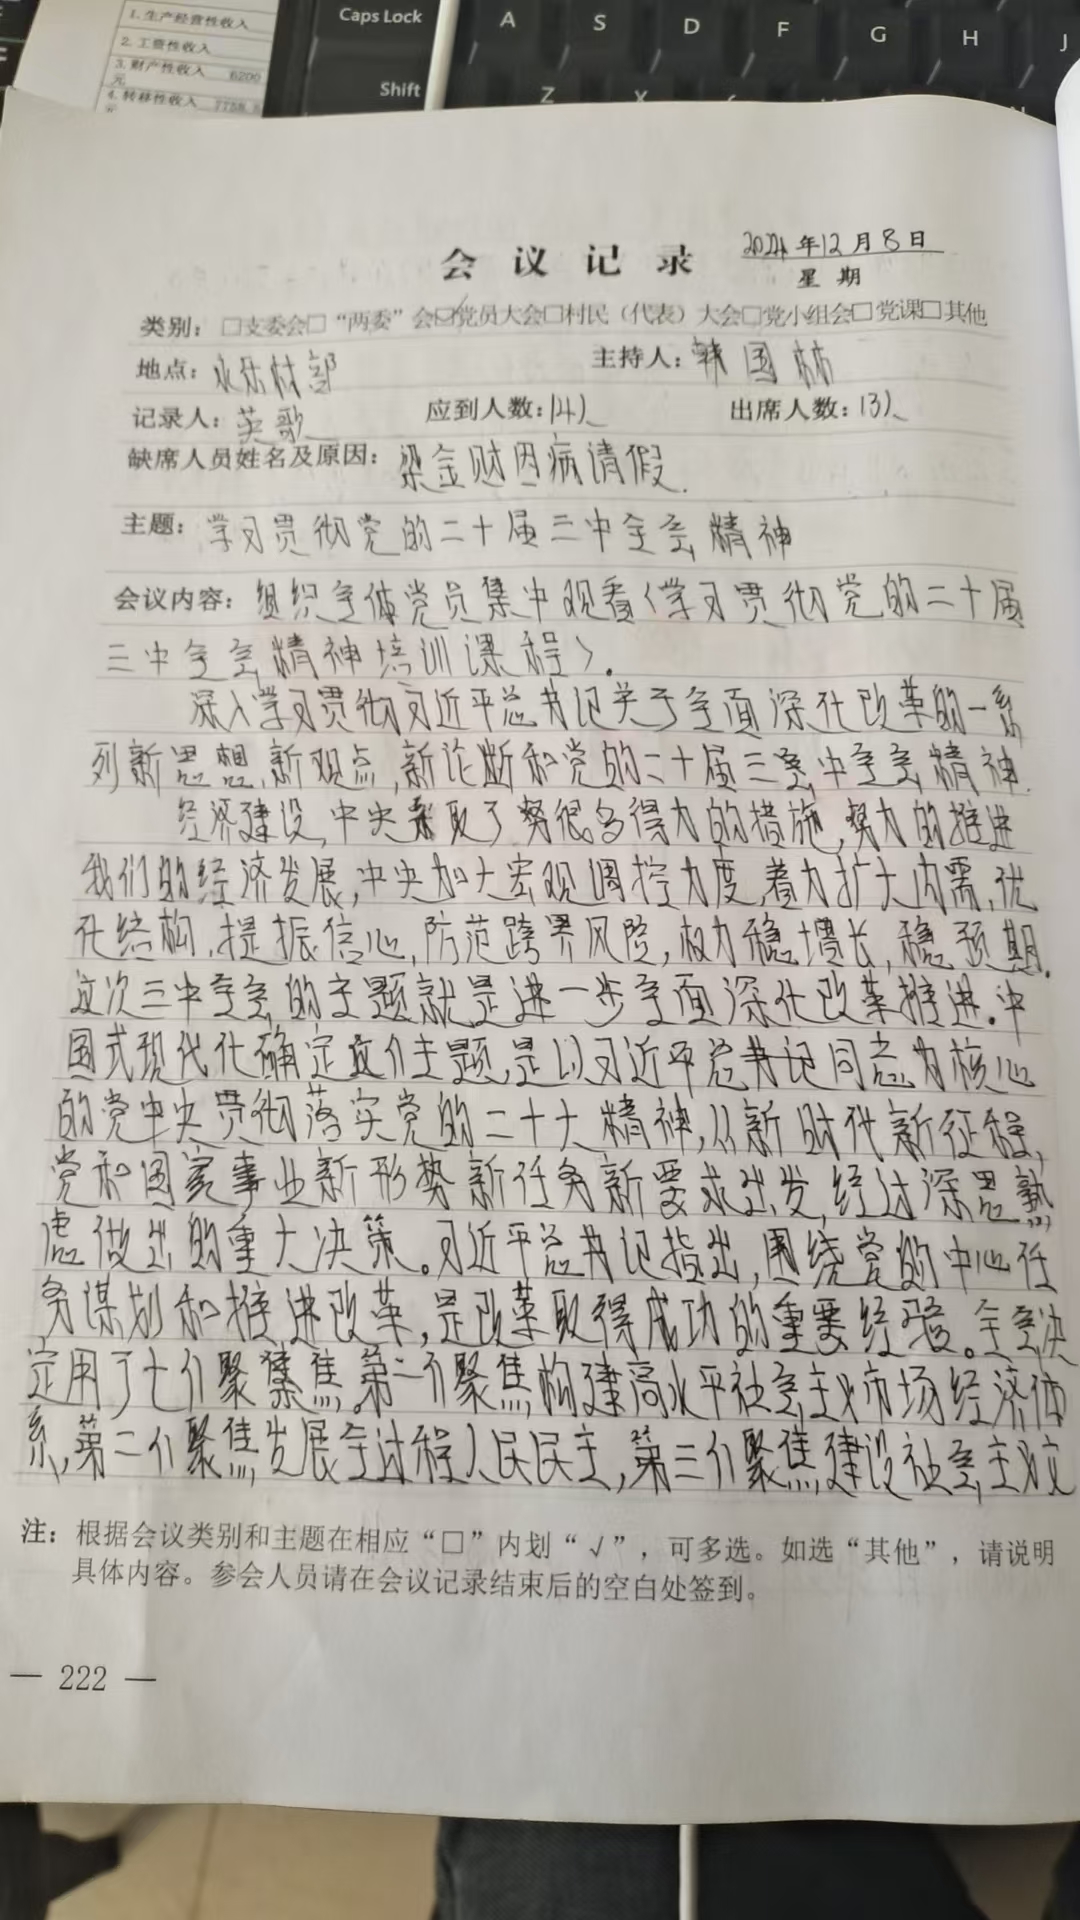 1. 生产经营性收入
2. 工资性收入
3. 财产性收入 6200
元
4. 转移性收入 7758.
元
Caps Lock A S D F G H J
Shift Z X
会议记录
2024年12月8日
星期
类别：□支委会□“两委”会☑党员大会□村民（代表）大会□党小组会□党课□其他
地点：水 村部 主持人：韩国林
记录人：英歌 应到人数：14人 出席人数：13人
缺席人员姓名及原因：梁金财因病请假.
主题：学习贯彻党的二十届三中全会精神
会议内容：组织全体党员集中观看《学习贯彻党的二十届
三中全会精神培训课程》.
深入学习贯彻习近平总书记关于全面深化改革的一系
列新思想,新观点,新论断和党的二十届三 中全会精神.
经济建设,中央采取了 很多得力的措施,努力的推进
我们的经济发展,中央加大宏观调控力度,着力扩大内需,优
化结构,提振信心,防范跨界风险,权力稳增长,稳预期.
这次三中全会的主题就是进一步全面深化改革推进.中
国式现代化确定这个主题,是以习近平总书记同志为核心
的党中央贯彻落实党的二十大精神,从新时代新征程,
党和国家事业新形势新任务新要求出发,经过深思熟
虑做出的重大决策。习近平总书记指出,围绕党的中心任
务谋划和推进改革,是改革取得成功的重要经验。全会决
定用了七个聚集焦.第一个聚焦,构建高水平社会主义市场经济体
系,第二个聚焦,发展全过程人民民主,第三个聚焦,建设社会主义文
注：根据会议类别和主题在相应“□”内划“√”，可多选。如选“其他”，请说明
具体内容。参会人员请在会议记录结束后的空白处签到。
— 222 —